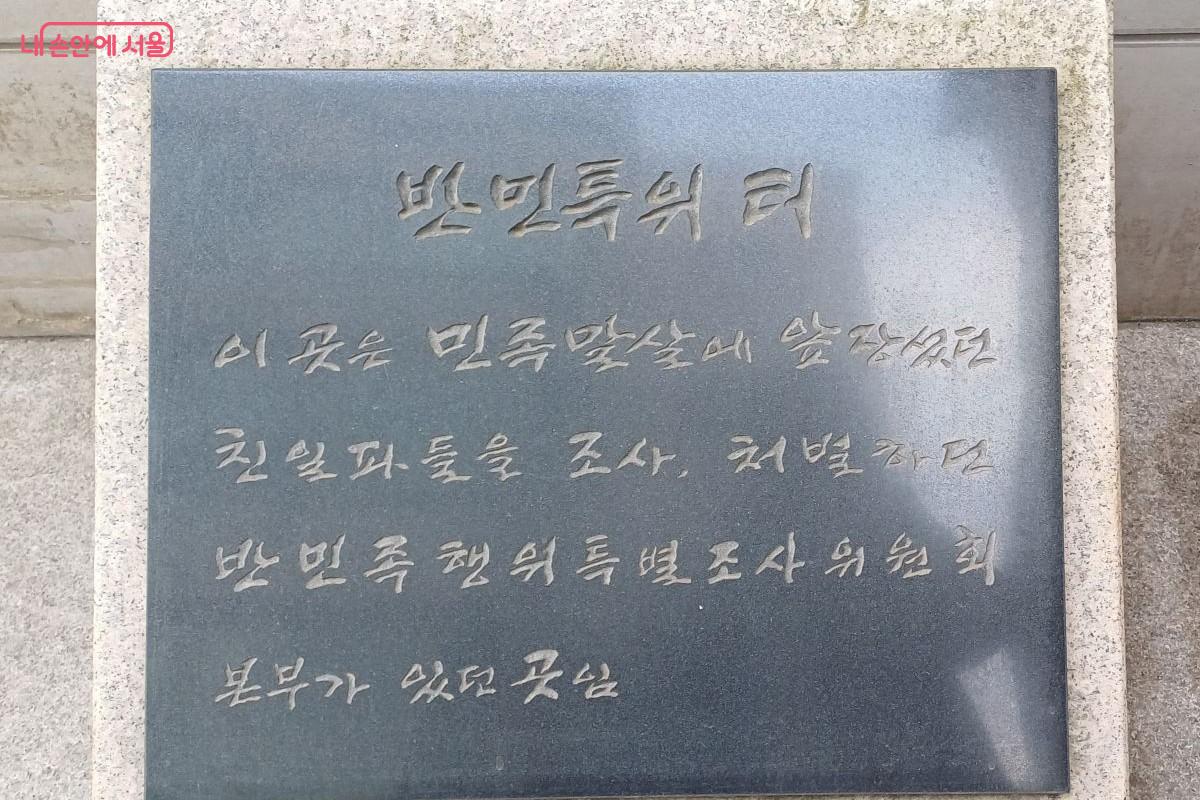 내 손안에 서울
반민특위 터
이 곳은 민족말살에 앞장섰던
친일파들을 조사, 처벌하던
반민족행위특별조사위원회
본부가 있던 곳임